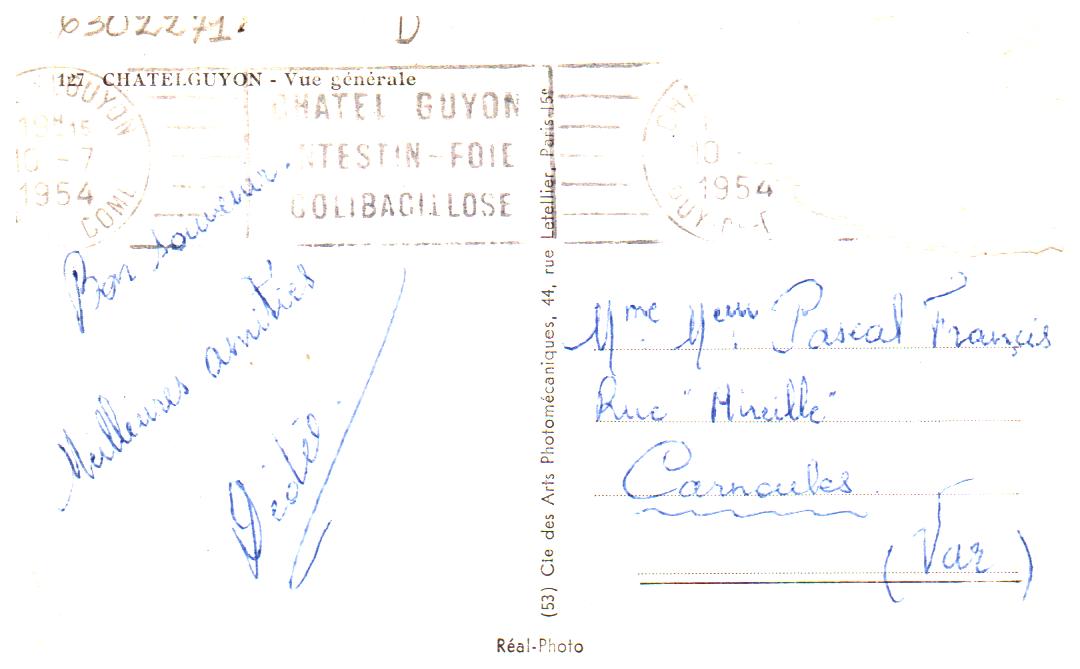 6302271
D
127 CHATELGUYON - Vue générale
CHATEL GUYON
INTESTIN-FOIE
COLIBACILLOSE
10 -7
1954
10
1954
Bon souvenir.
Meilleures amitiés
Mme Meur Pascal Françis
Rue "Mireille"
Carnoules.
(Var)
(53) Cie des Arts Photomécaniques, 44, rue Letellier, Paris-15e
Réal-Photo